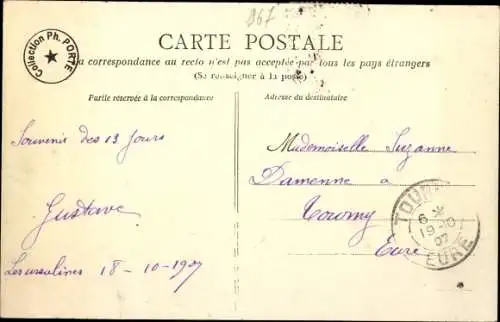 967
Collection Ph. PORTE
CARTE POSTALE
a correspondance au recto n'est pas acceptée par tous les pays étrangers
(Se renseigner à la poste)
Partie réservée à la correspondance
Adresse du destinataire
Souvenir des 13 Jours
Gustave
Les ursulines 18-10-1907
Mademoiselle Suzanne
Damenne a
Tourny
Eure
TOURNY
6 *
19 10
07
EURE